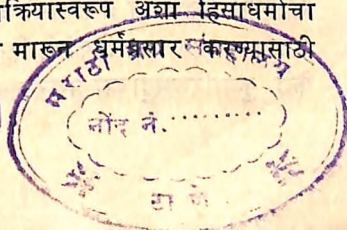 क्रियास्वरूप अशा हिंसाधर्माचा
मारून धर्मप्रसार करण्यासाठी
मराठी
नोंद नं.